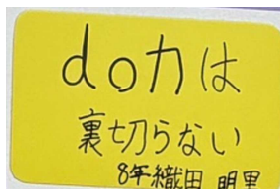 doカは
裏切らない
8年織田 明里